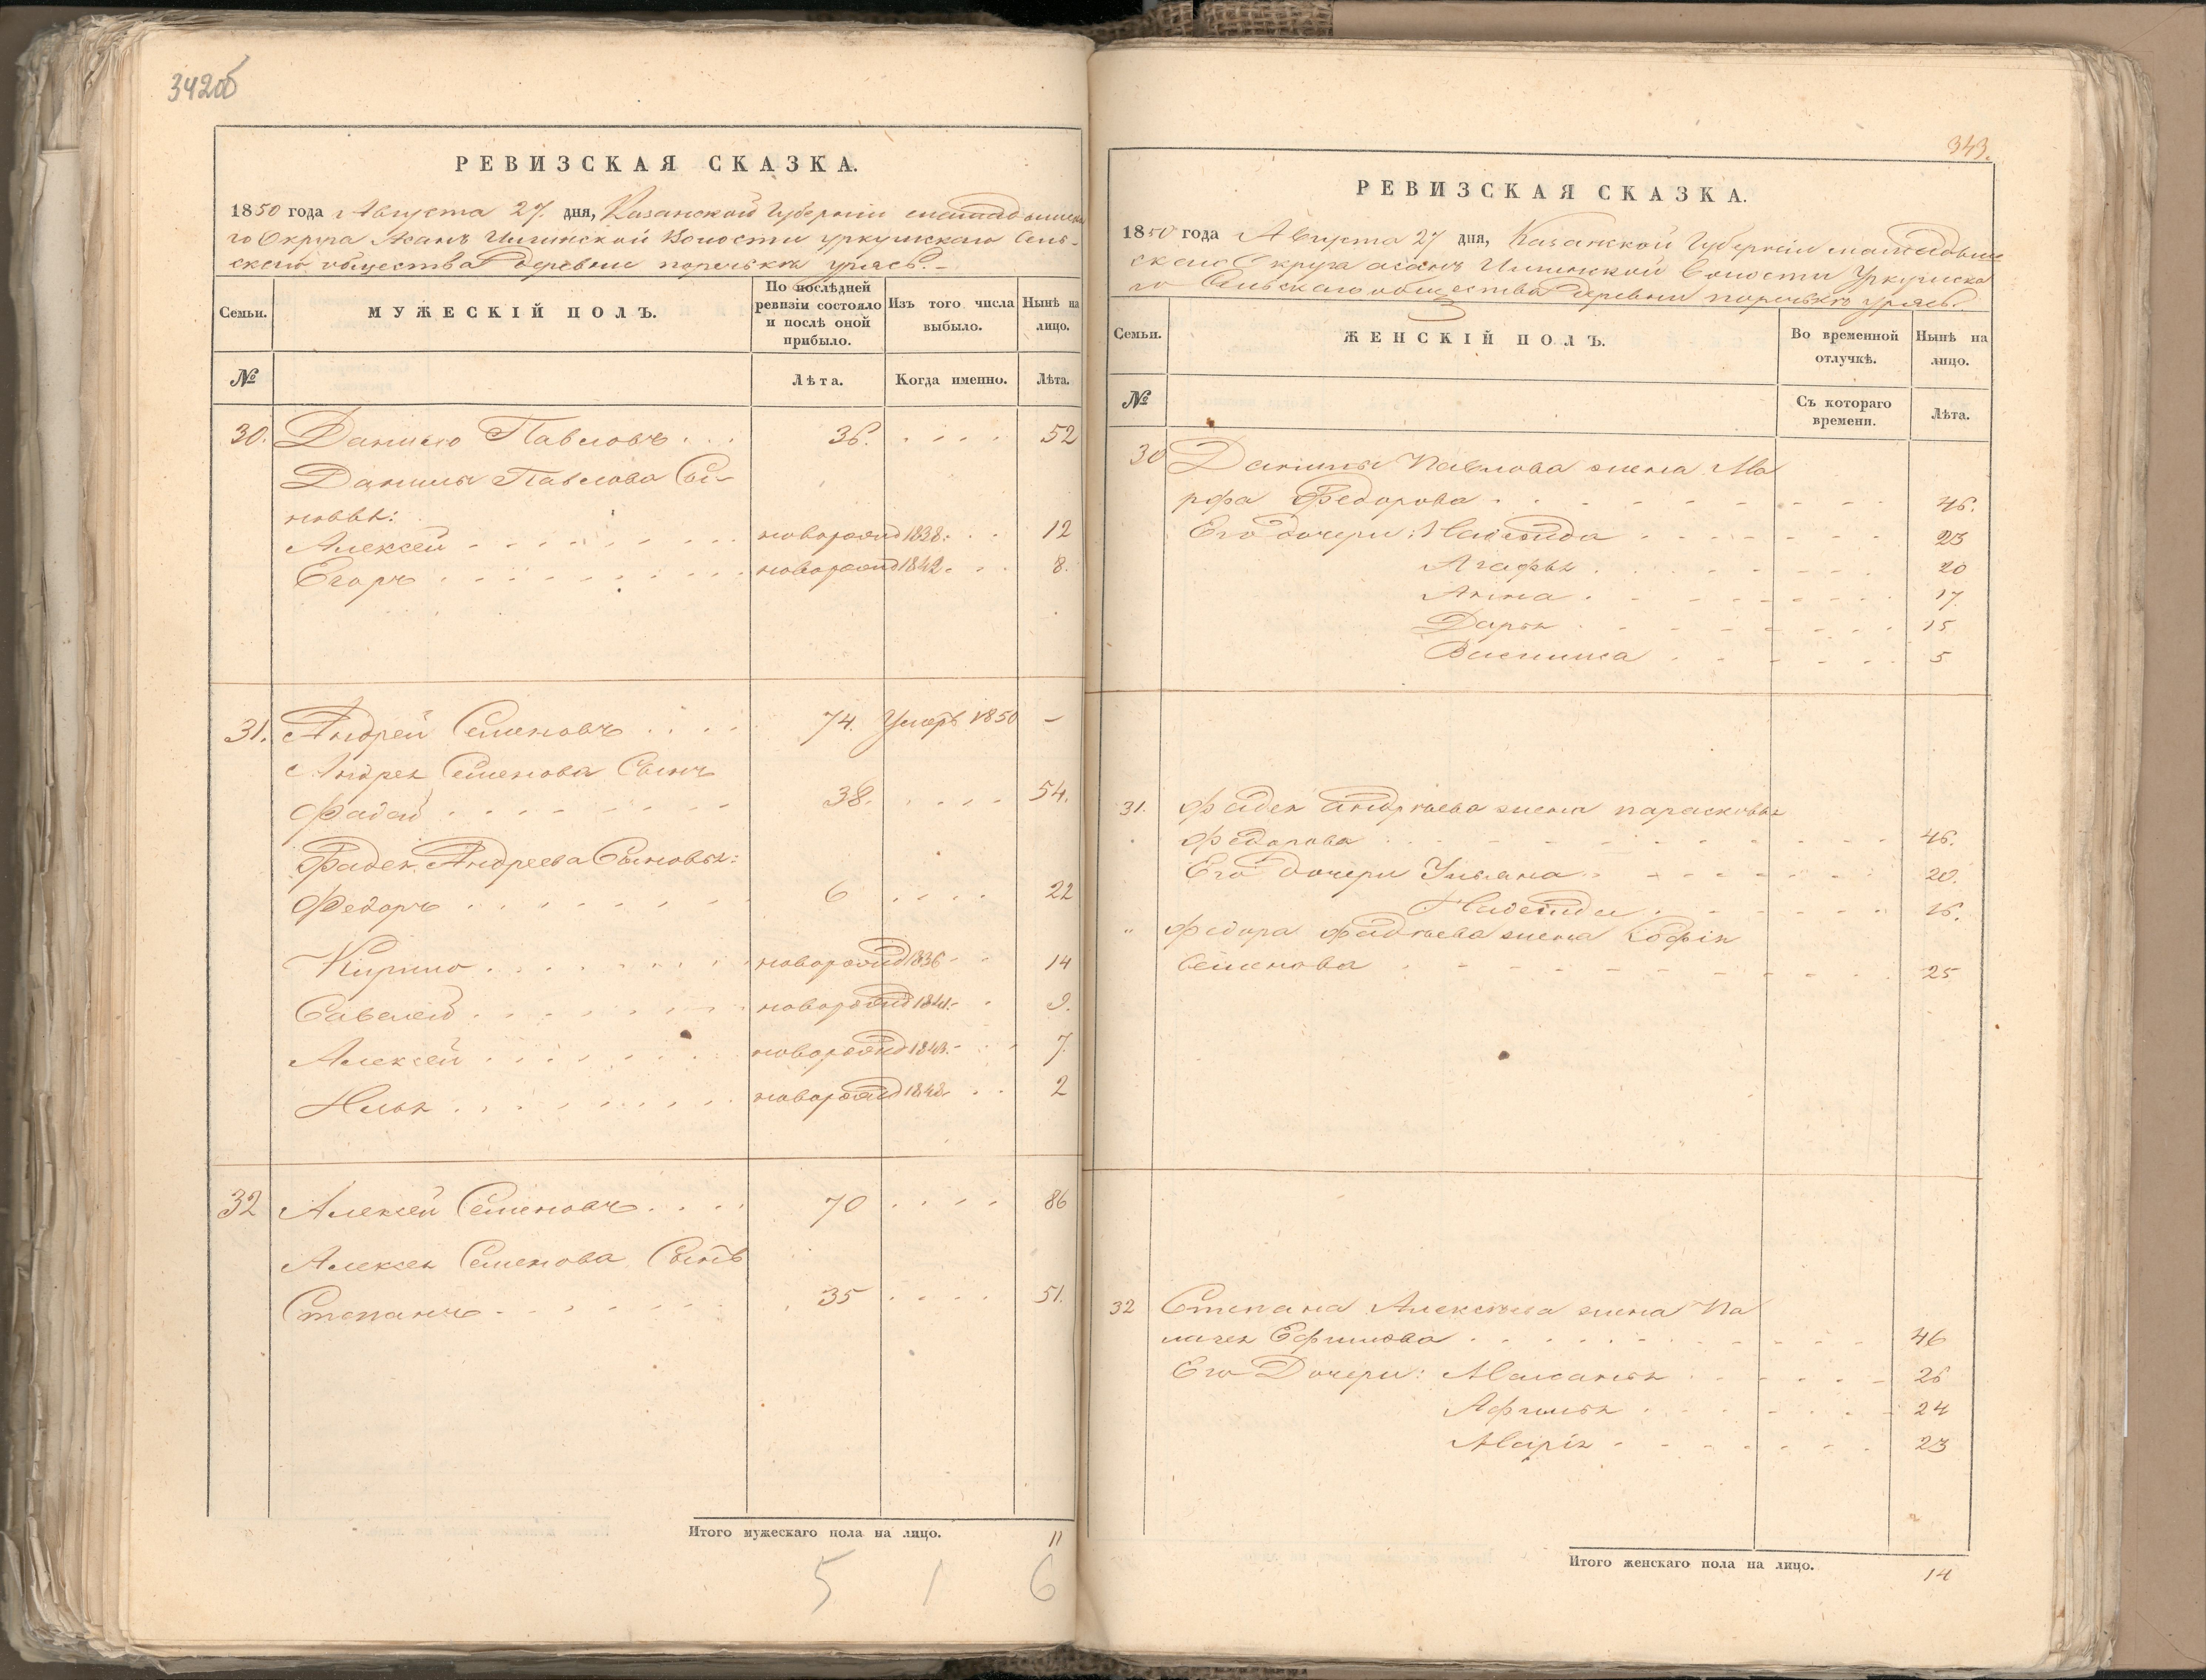 342об
РЕВИЗСКАЯ СКАЗКА.
1850 года Августа 27. дня, Казанской Губернии мамадышска
го Округа Асанъ Илгинской Волости уркушскаго Сель-
скаго общества деревни поречькъ уряс. -
Семьи. МУЖЕСКІЙ ПОЛЪ. По послѣдней ревизіи состояло и послѣ оной прибыло. Изъ того числа выбыло. Нынѣ на лицо.
№ Лѣта. Когда именно. Лѣта.
30. Данило Павловъ 36. 52
Данилы Павлова Сы-
новья:
Алексей новорожд 1838. 12
Егоръ новорожд 1842. 8.
31. Андрей Семеновъ 74. Умеръ 1850 -
Андрея Семенова Сынъ
Фадей 38. 54.
Фадея Андреева Сыновья:
Федоръ 6 22
Кирило новорожд 1836 14
Савелей новорожд 1841. 9.
Алексей новорожд 1843. 7.
Илья новорожд 1848 2
32 Алексей Семеновъ 70 86
Алексея Семенова Сынъ
Степанъ 35 51.
Итого мужескаго пола на лицо. 11
5 1 6
343.
РЕВИЗСКАЯ СКАЗКА.
1850 года Августа 27 дня, Казанской Губерніи мамадыш
скаго Округа асанъ Илгинской Волости Уркушска
го Сельскаго общества деревни поречькъ уряс.
Семьи. ЖЕНСКІЙ ПОЛЪ. Во временной отлучкѣ. Нынѣ на лицо.
№ Съ котораго времени. Лѣта.
30 Данилы Павлова жена Ма
рфа Федорова 46.
Его дочери: Надежда 23
Агафья 20
Анна 17
Дарья 15
Василиса 5
31. Фадея андрѣева жена парасковья
Федорова 46.
Его дочери Ульяна 20.
Надежда 16.
" Федора фадѣева жена Софія
Семенова 25
32 Степана Алексѣева жена Па
лагея Ефимова 46
Его Дочери: Маланья 26
Афимья 24
Марія 23
Итого женскаго пола на лицо. 14